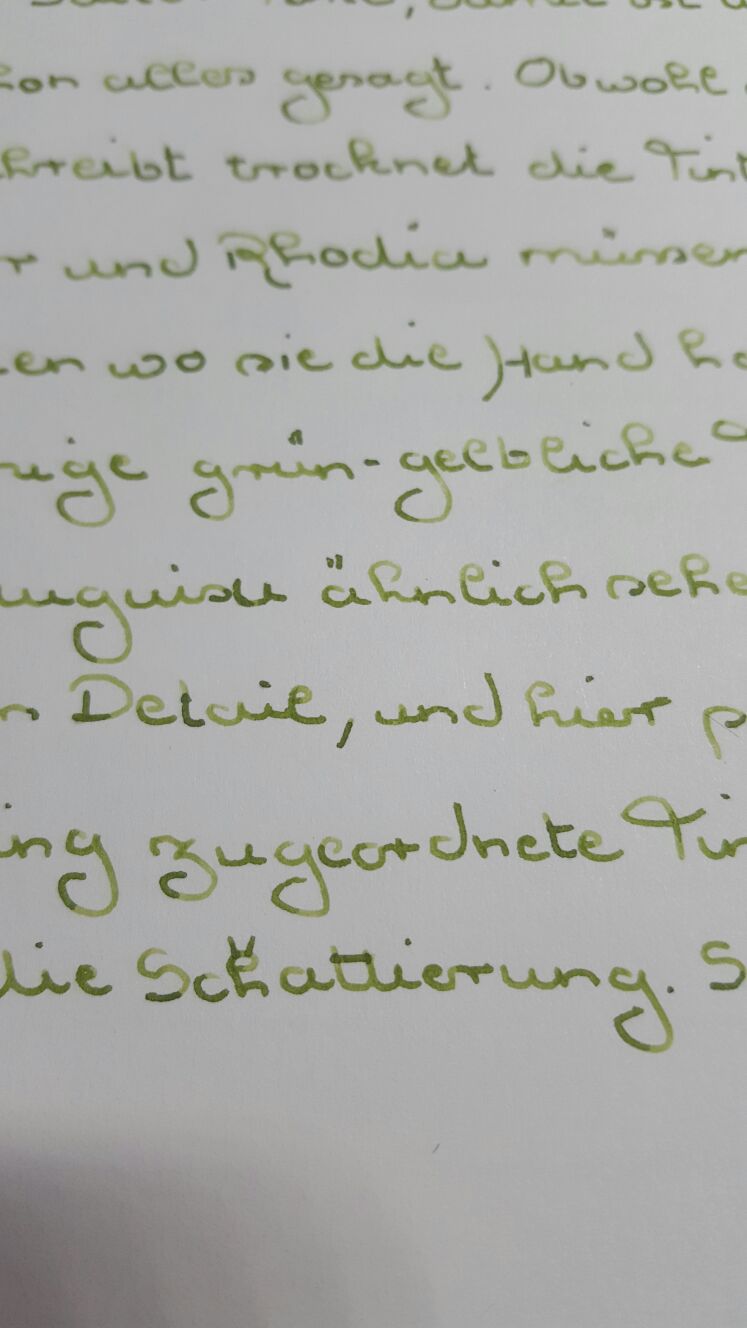 damit ist
hon alles gesagt. Obwohl
hreibt trocknet die Tint
r und Rhodia müssen
en wo sie die Hand ha
ige grün-gelbliche
ähnlich sehe
n Detail, und hier p
ing zugeordnete Tin
die Schattierung. S